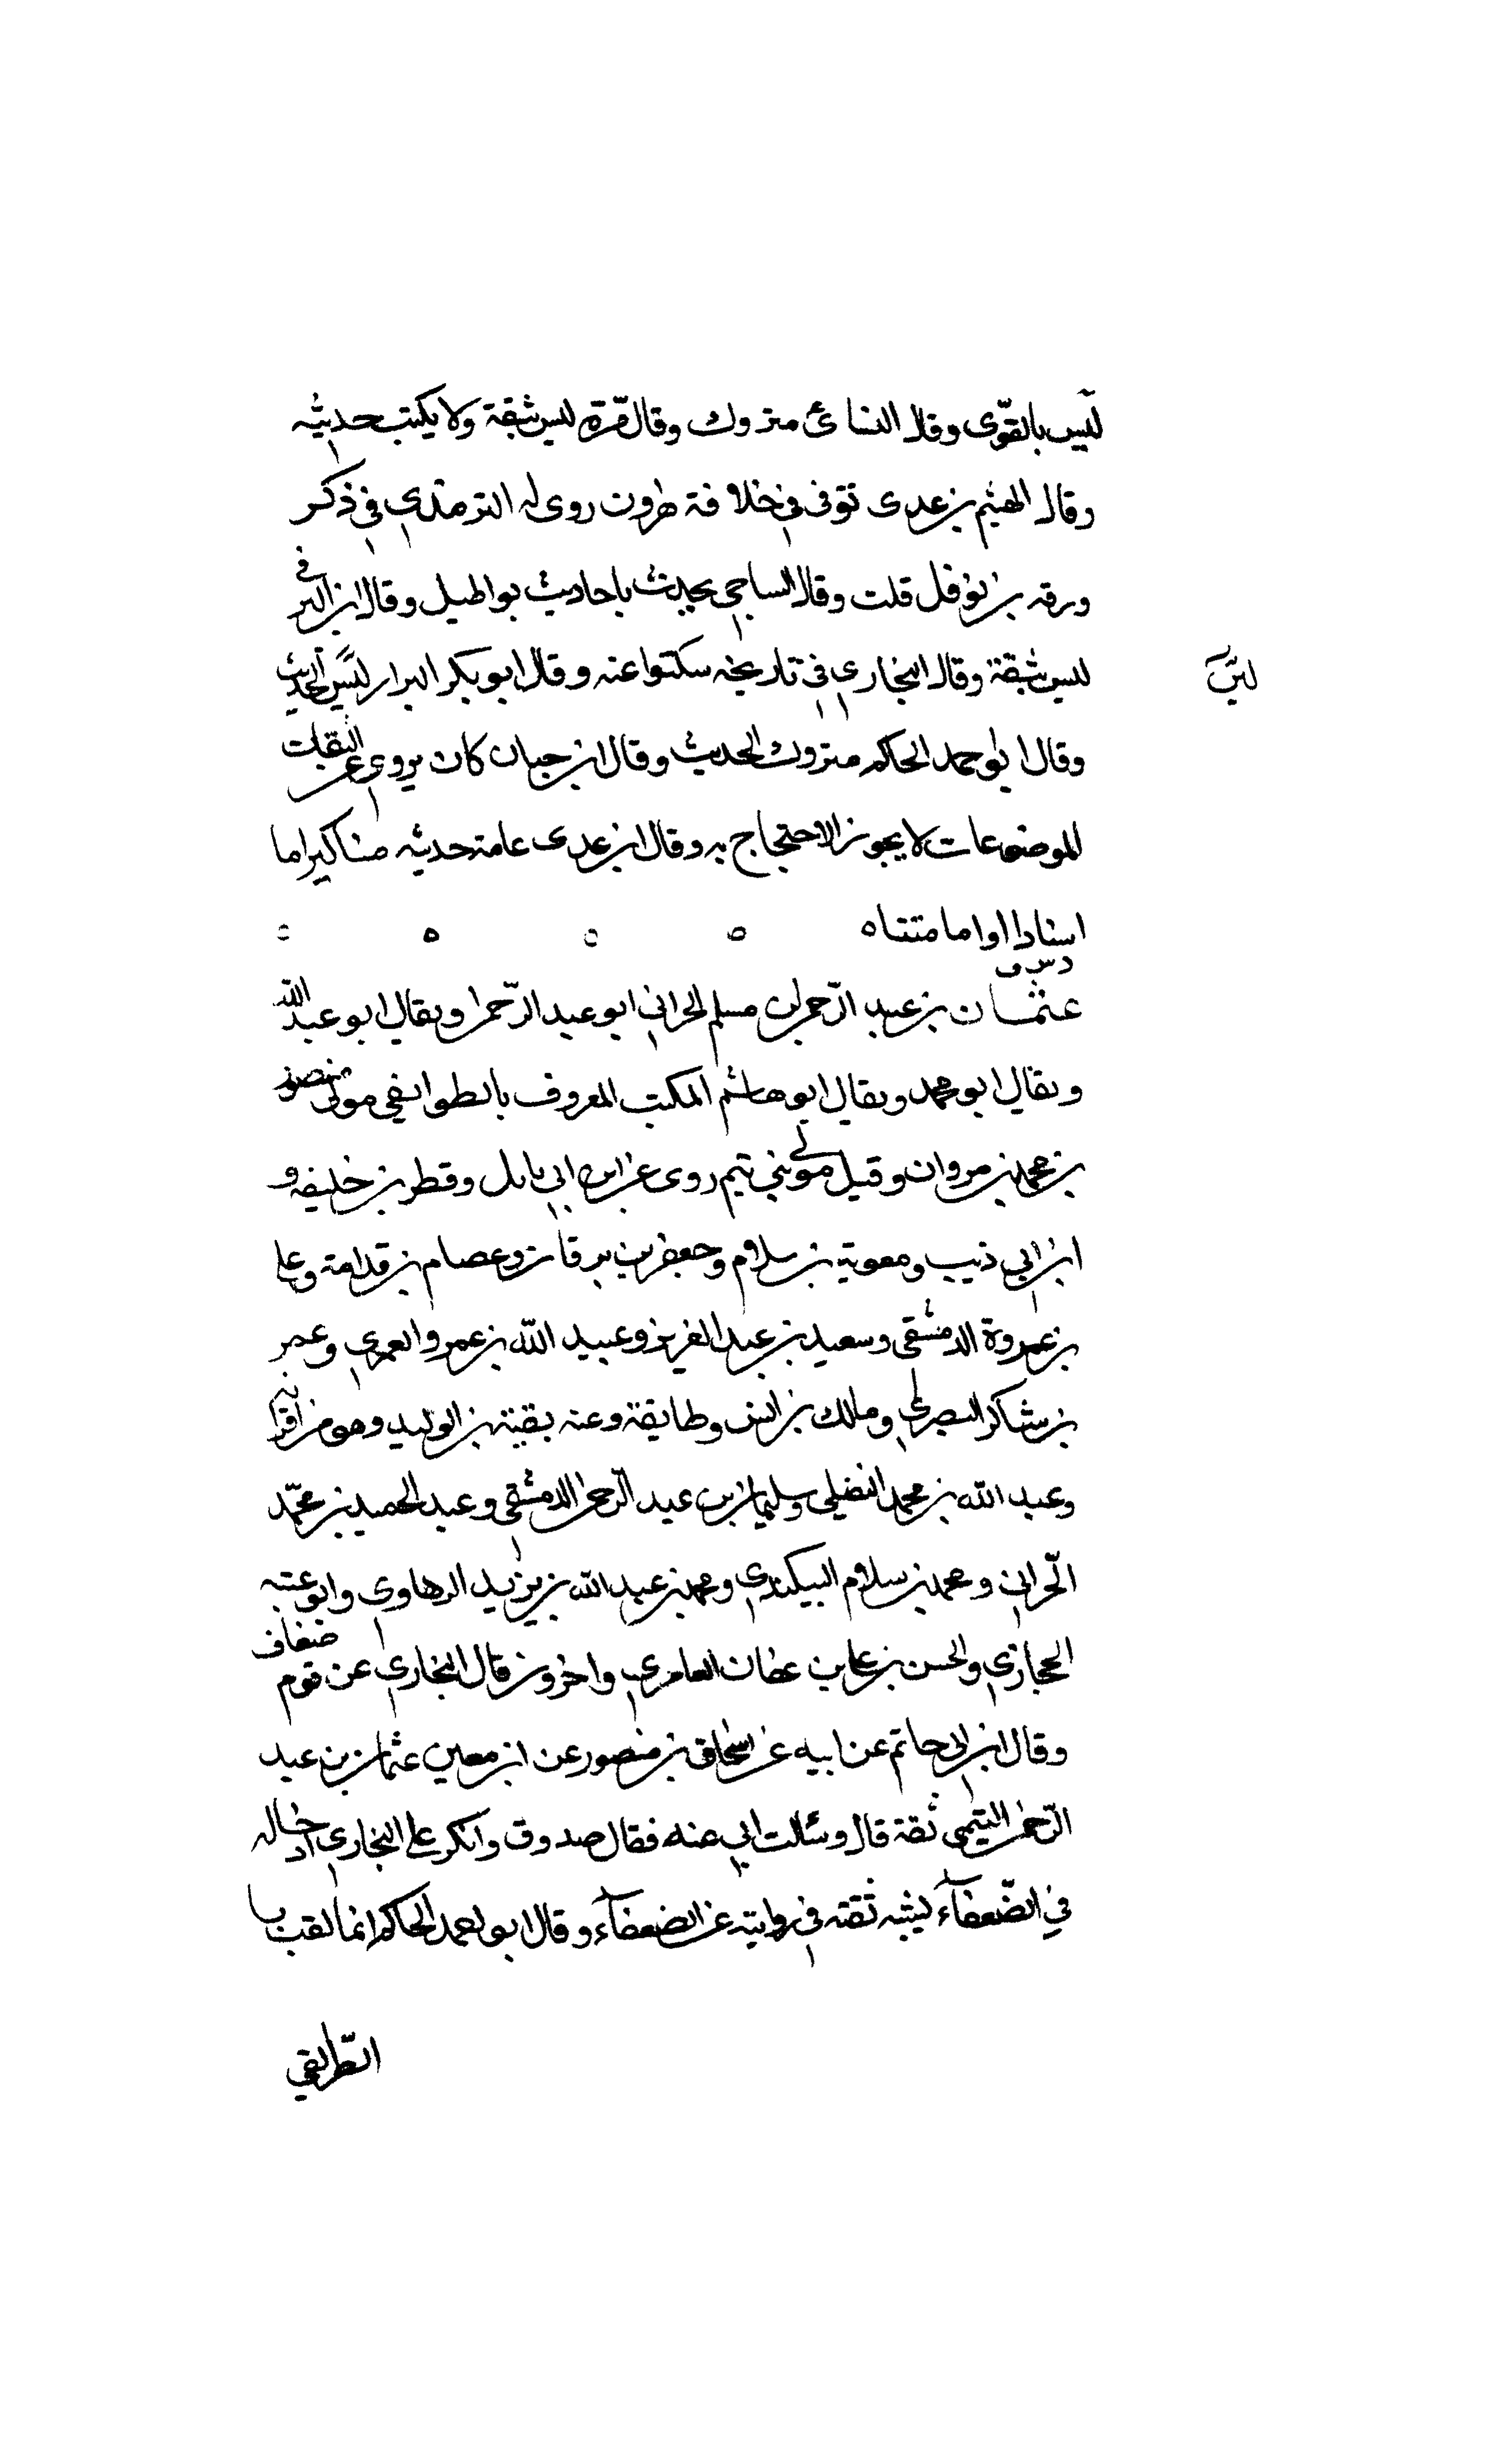 ليس بالقوى وقال النسائ متروك وقال مرة ليس بثقة ولا يكتب حديثه
وقال الهيثم بن عدى توفى في خلافة هارون روى له الترمذي في ذكر
ورقه بن نوفل قلت وقال الساجي يحدث باحاديث بواطيل وقال ابن البرقي
ليس بثقة وقال البخاري في تاريخه سكتوا عنه وقال ابو بكر البزار ليّن الحديث
ليّن
وقال ابو احمد الحاكم متروك الحديث وقال ابن حبان كان يروي عن الثقات
الموضوعات لا يجوز الاحتجاج به وقال ابن عدى عامة حديثه مناكير اما
اسنادا او اما متناه
د س ق
عثمان بن عبد الرحمن بن مسلم الحراني ابو عبد الرحمن ويقال ابو عبد الله
ويقال ابو محمد ويقال ابو هاشم المكتب المعروف بالطوايفي مولى منصور
بن محمد بن مروان وقيل مولى بني تيم روى عن ايمن ابي نابل وفطر بن خليفه و
ابن ابي ذيب ومعوية بن سلام وجعفر بن برقان وعصام بن قدامة وعلي
بن عروة الدمشقي وسعيد بن عبد العزيز وعبيد الله بن عمرو العمري وعمر
بن شاكر البصري ومالك بن انس وطايفة وعنه بقية بن الوليد وهو من اقرانه
وعبد الله بن محمد النفيلي وسليمان بن عبد الرحمن الدمشقي وعبد الحميد بن محمّد
الحراني ومحمد بن سلام البيكندي ومحمد بن عبد الله بن يزيد الرهاوي وابو عتبه
الحجازي والحسن بن علي بن عفان العامري واخرون قال البخاري عن قوم ضعاف
وقال ابن ابي حاتم عن ابيه عن اسحاق بن منصور عن ابن معين عثمان بن عبد
الرحمن التيمي ثقة قال وسئالت ابي عنه فقال صدوق وانكر على البخاري ادخاله
في الضّعفآء يشبه بقية في روايته عن الضعفآء وقال ابو احمد الحاكم انما لقب با
الطرايقي